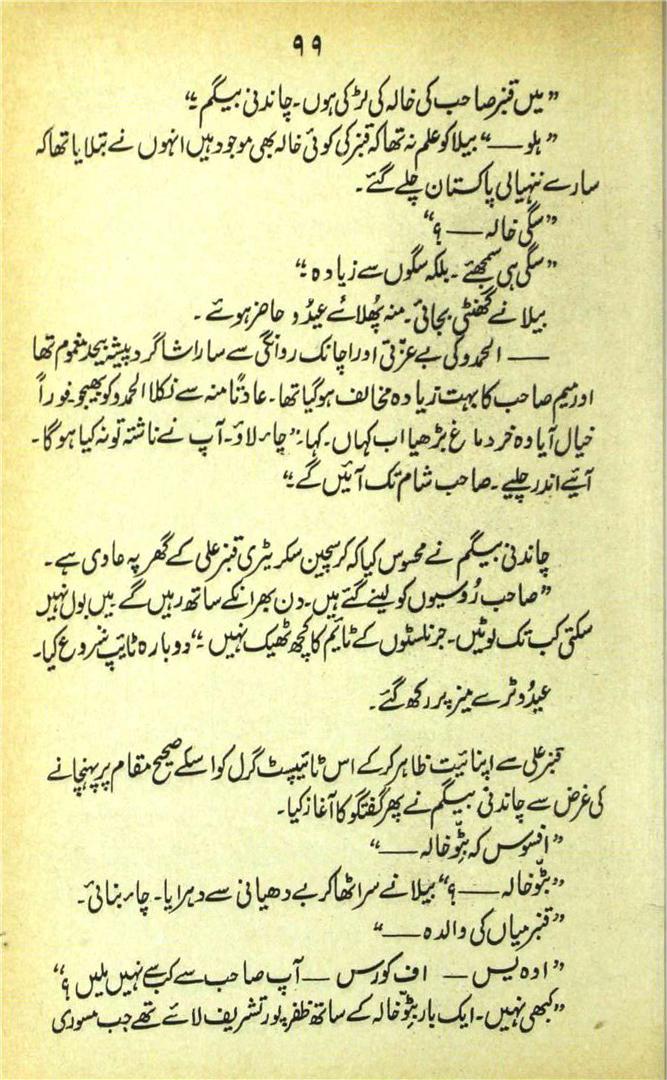 ۹۹
”میں قنبر صاحب کی خالہ کی لڑکی ہوں۔ چاندنی بیگم۔“
”ہلو —“ بیلا کو علم نہ تھا کہ قنبر کی کوئی خالہ بھی موجود ہیں انہوں نے بتلایا تھا کہ
سارے ننہیالی پاکستان چلے گئے۔
”سگی خالہ — ؟“
”سگی ہی سمجھئے۔ بلکہ سگوں سے زیادہ۔“
بیلا نے گھنٹی بجائی۔ منہ پُھلائے عیدُو حاضر ہوئے۔
— الحمدو کی بے عزّتی اور اچانک روانگی سے سارا شاگرد پیشہ بیحد مغموم تھا
اور میم صاحب کا بہت زیادہ مخالف ہو گیا تھا۔ عادتاً منہ سے نکلا الحمدو کو بھیجو۔ فوراً
خیال آیا وہ خردماغ بڑھیا اب کہاں۔ کہا۔ ”چاء لاؤ۔ آپ نے ناشتہ تو نہ کیا ہوگا۔
آئیے اندر چلیے۔ صاحب شام تک آئیں گے۔“
چاندنی بیگم نے محسوس کیا کہ کرسچین سکریٹری قنبر علی کے گھر پہ حاوی ہے۔
”صاحب رُوسیوں کو لینے گئے ہیں۔ دن بھر انکے ساتھ رہیں گے میں بول نہیں
سکتی کب تک لوٹیں۔ جرنلسٹوں کے ٹایم کا کچھ ٹھیک نہیں۔“ دوبارہ ٹایپ شروع کیا۔
عیدُو ٹرے میز پر رکھ گئے۔
قنبر علی سے اپنائیت ظاہر کر کے اس ٹائیپسٹ گرل کو اسکے صحیح مقام پر پہنچانے
کی غرض سے چاندنی بیگم نے پھر گفتگو کا آغاز کیا۔
”افسوس کہ بٹّو خالہ —“
”بٹّو خالہ — ؟“ بیلا نے سر اٹھا کر بے دھیانی سے دہرایا۔ چاء بنائی۔
”قنبر میاں کی والدہ —“
”اوہ یس — اف کورس — آپ صاحب سے کب سے نہیں ملیں ؟“
”کبھی نہیں۔ ایک بار بٹّو خالہ کے ساتھ ظفرپور تشریف لائے تھے جب مسوری